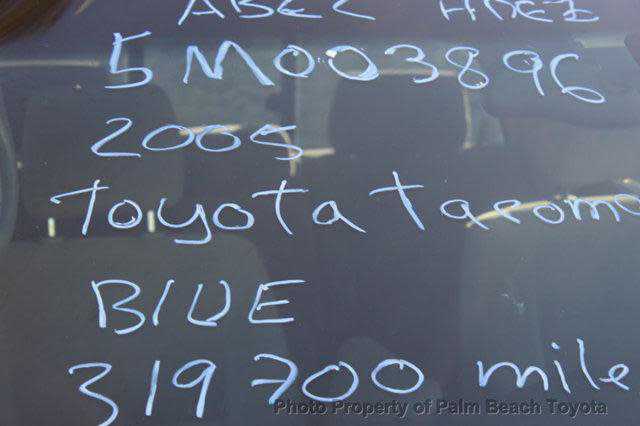 5M003896
2005
Toyota taroma
BLUE
319700 mile
Photo Property of Palm Beach Toyota